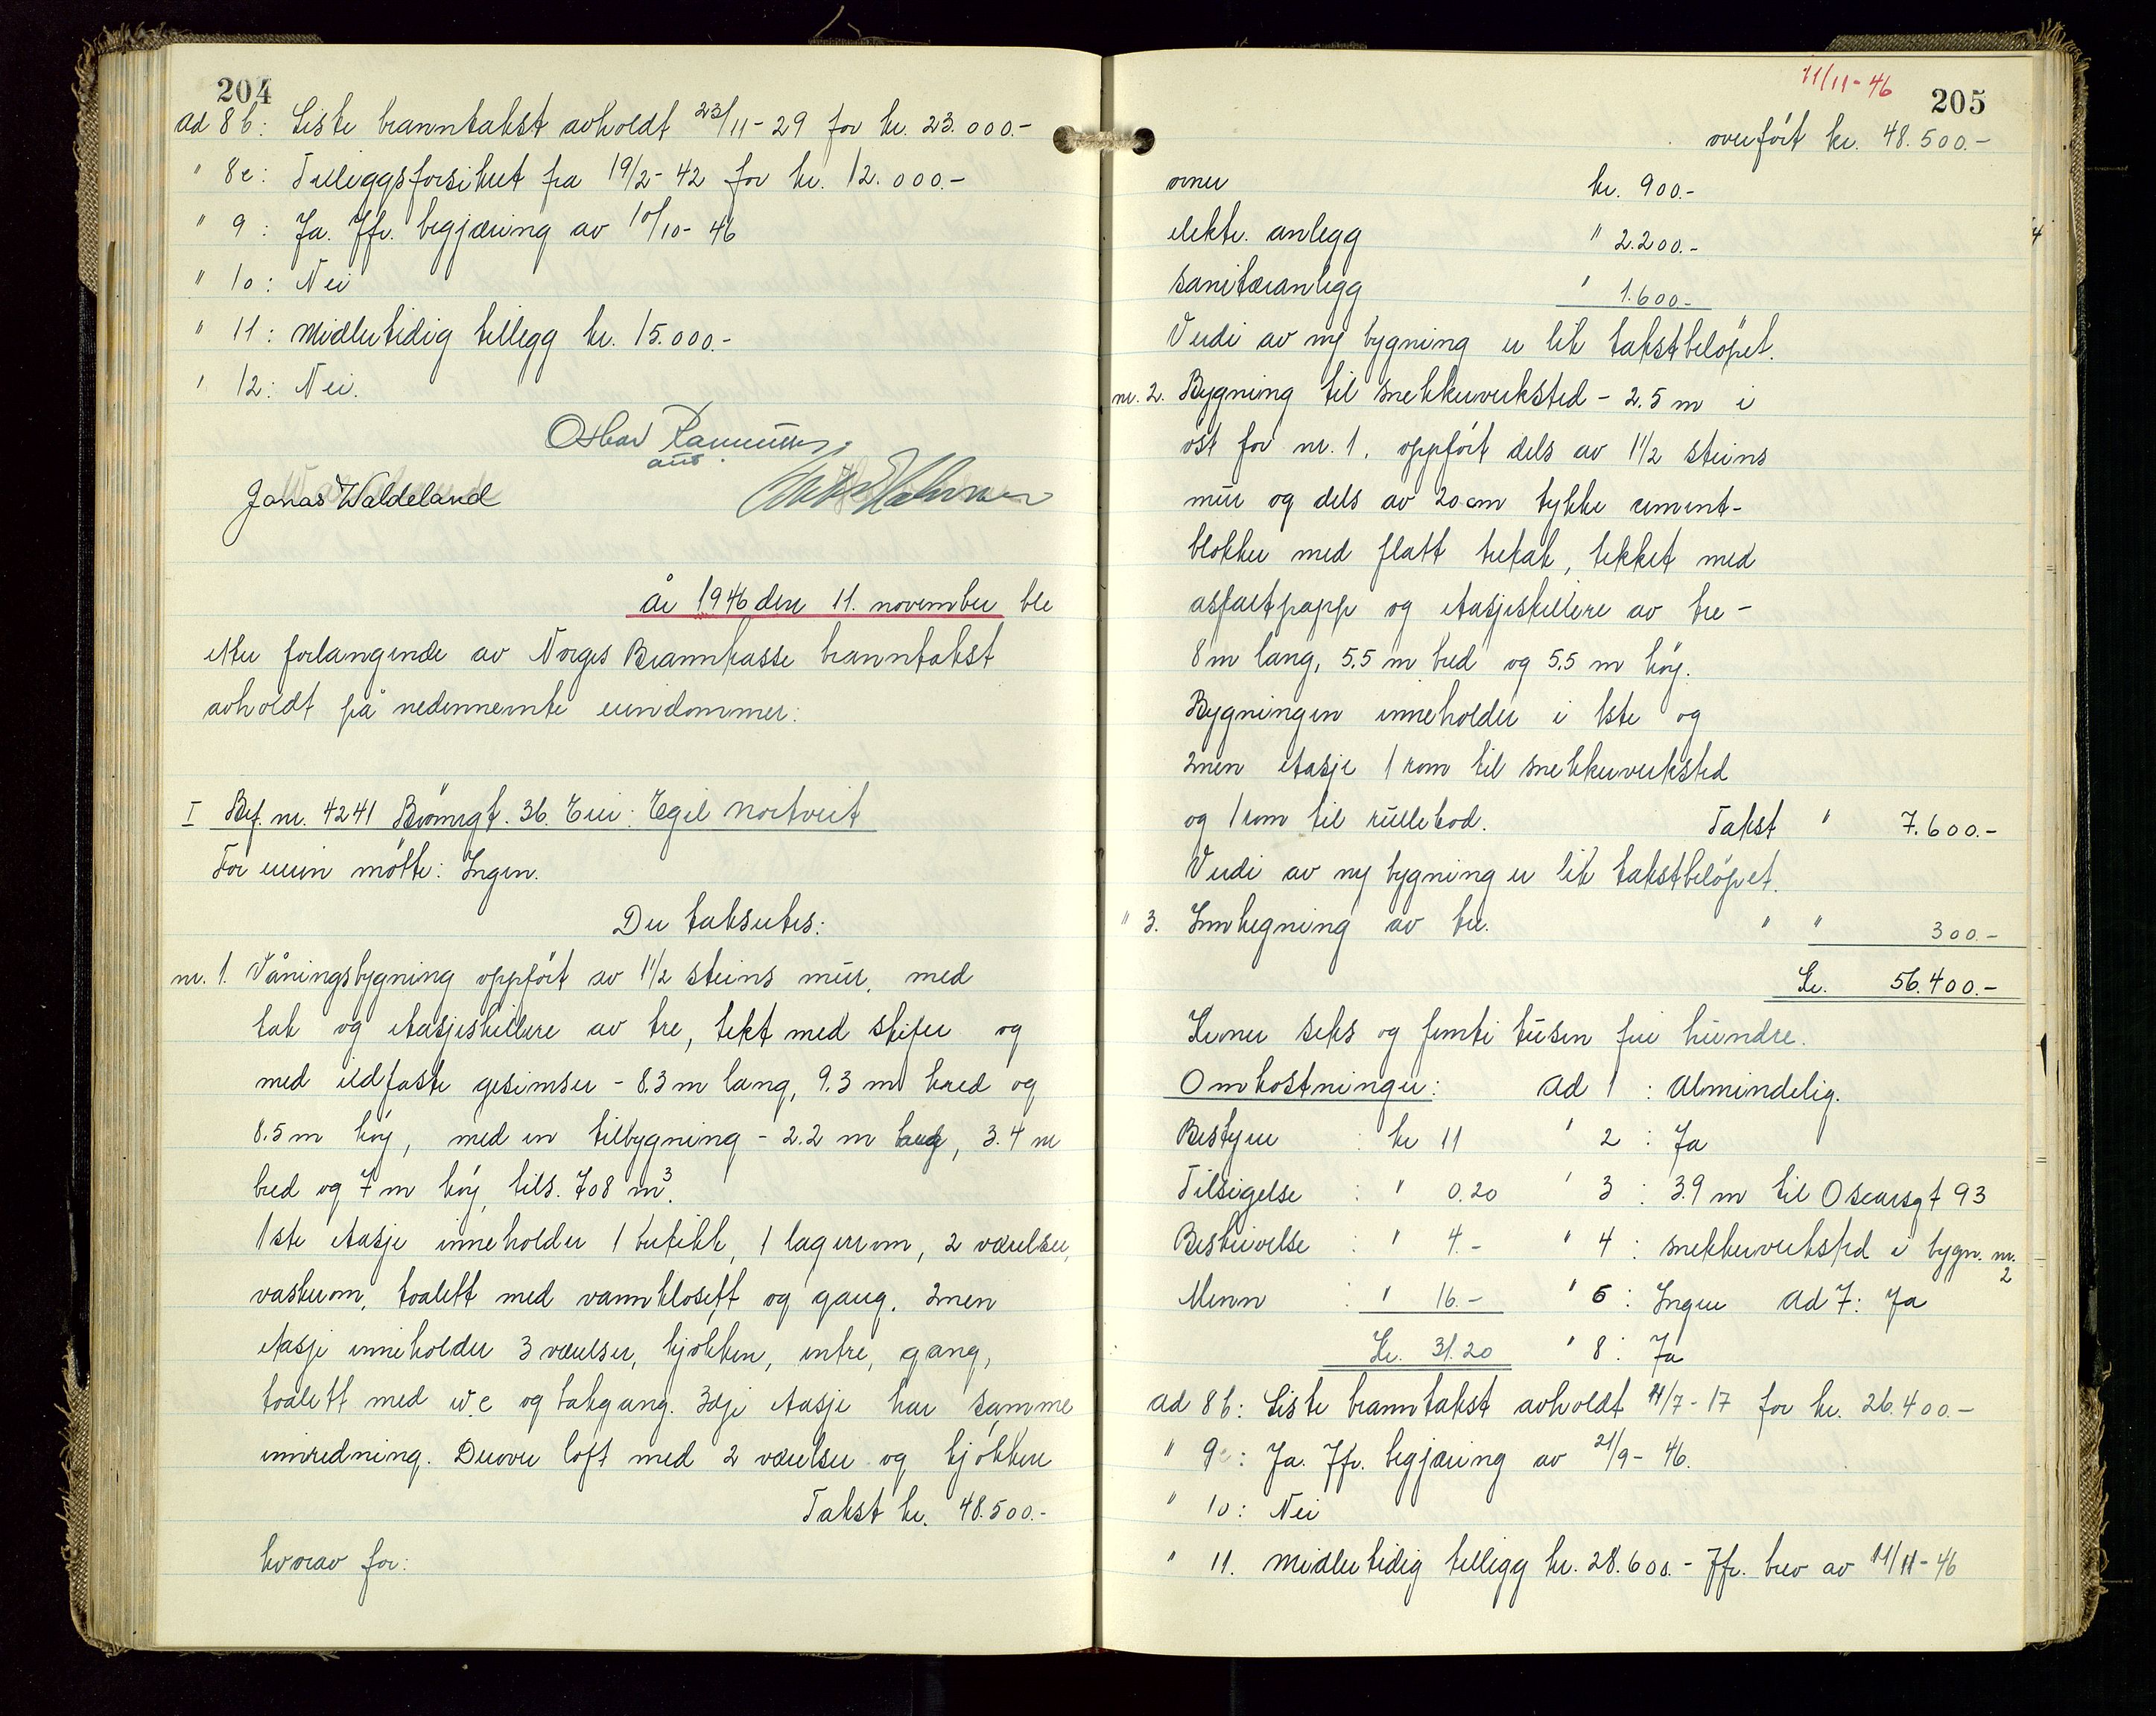 204
ad 8 b: Siste branntakst avholdt 23/11-29 for kr. 23.000.-
" 8c: Tilleggsforsikret fra 19/2-42 for kr. 12.000.-
" 9: Ja. Jfr. begjæring av 10/10-46
" 10: Nei
" 11: Midlertidig tillegg kr. 15.000.-
" 12: Nei.
Oskar Rasmussen
Jonas Waldeland
År 1946 den 11. november ble
etter forlangende av Norges Brannkasse branntakst
avholdt på nedennevnte eiendommer:
I Brf. nr. 4241 Eier: Egil Nortveit
For eieren møtte: Ingen.
Der takseres:
nr. 1. Våningsbygning oppført av 1 1/2 steins mur, med
tak og etasjeskillere av tre, tekt med skifer og
med ildfaste gesimser - 8.3 m lang, 9.3 m bred og
8.5 m høy, med en tilbygning - 2.2 m lang, 3.4 m
bred og 7 m høy, tils. 708 m³.
1ste etasje inneholder 1 butikk, 1 lagerrom, 2 værelser,
vaskerom, toalett med vannklosett og gang. 2nen
etasje inneholder 3 værelser, kjøkken, entre, gang,
toalett med w.c og bakgang. 3dje etasje har samme
innredning. Derover loft med 2 værelser og kjøkken
Takst kr. 48.500.-
hvorav for:
11/11-46
205
overført kr. 48.500.-
ovner kr. 900.-
elektr. anlegg " 2.200.-
sanitæranlegg " 1.600.-
Verdi av ny bygning er lik takstbeløpet.
nr. 2. Bygning til snekkerverksted - 2.5 m i
øst for nr. 1, oppført dels av 1 1/2 steins
mur og dels av 20 cm tykke cement-
blokker med flatt tretak, tekket med
asfaltpapp og etasjeskillere av tre -
8 m lang, 5.5 m bred og 5.5 m høy.
Bygningen inneholder i 1ste og
2nen etasje 1 rom til snekkerverksted
og 1 rom til rullebod. Takst " 7.600.-
Verdi av ny bygning er lik takstbeløpet.
" 3. Innhegning av tre. " " 300.-
Kr. 56.400.-
Kroner seks og femti tusen fire hundre.
Omkostninger: ad 1 : Almindelig.
Bestyrer : kr 11 " 2 : Ja
Tilsigelse : " 0.20 " 3 : 3.9 m til Oscarsgt 93
Beskrivelse : " 4.- " 4 : snekkerverksted i bygn. nr. 2
Menn : " 16.- " 6 : Ingen ad 7: Ja
Kr. 31.20 " 8 : Ja
ad 8 b: Siste branntakst avholdt 11/7-17 for kr. 26.400.-
" 9: Ja. Jfr. begjæring av 21/9-46.
" 10: Nei
" 11. Midlertidig tillegg kr. 28.600.- Jfr. brev av 11/11-46